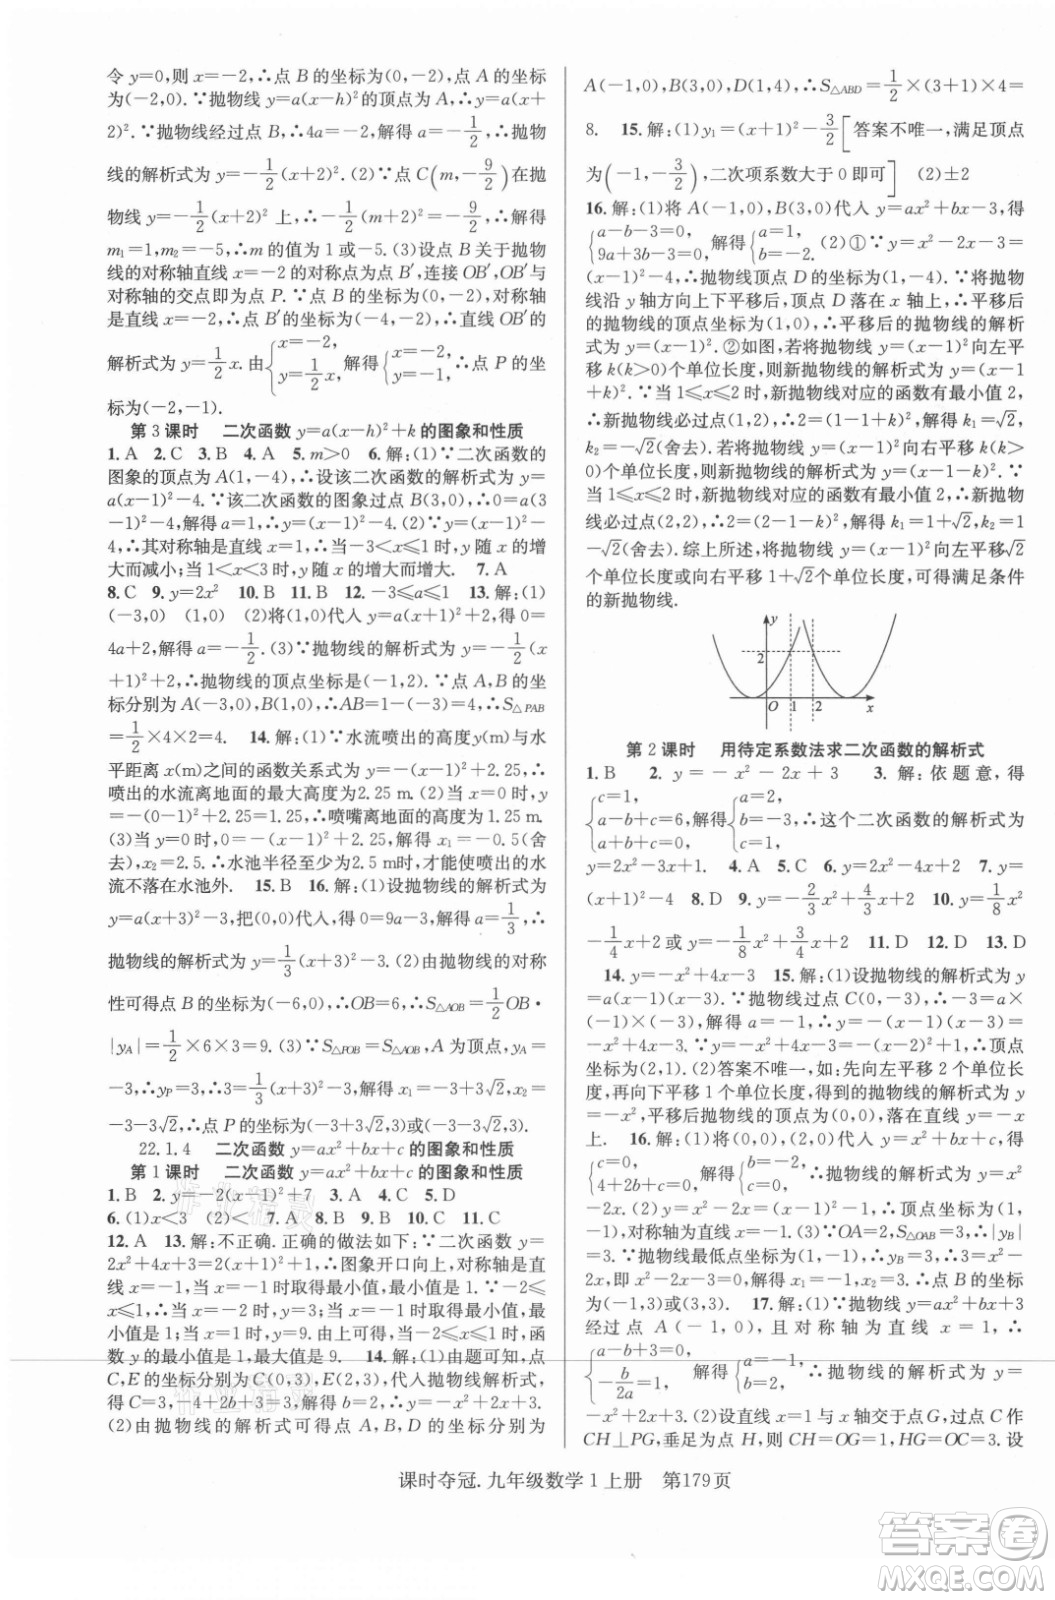 令 y=0,则 x=-2,∴点 B 的坐标为(0,-2),点 A 的坐标
为(-2,0).∵抛物线 y=a(x-h)²的顶点为 A,∴y=a(x+
2)².∵抛物线经过点 B,∴4a=-2,解得 a=-1/2,∴抛物
线的解析式为 y=-1/2(x+2)².(2)∵点 C(m,-9/2)在抛
物线 y=-1/2(x+2)² 上,∴-1/2(m+2)²=-9/2,∴解得
m₁=1,m₂=-5,∴m 的值为 1 或-5.(3)设点 B 关于抛物
线的对称轴直线 x=-2 的对称点为点 B′,连接 OB′,OB′与
对称轴的交点即为点 P.∵B(0,-2),抛物线的对称轴
是直线 x=-2,∴点 B′的坐标为(-4,-2),∴直线 OB′的
解析式为 y=1/2x.由{x=-2, y=1/2x, 解得{x=-2, y=-1. ∴点 P 的坐
标为(-2,-1).
第 3 课时 二次函数 y=a(x-h)²+k 的图象和性质
1. A 2. C 3. B 4. A 5. m>0 6. 解:(1)∵二次函数的
图象的顶点为 A(1,-4),∴设该二次函数的解析式为 y=
a(x-1)²-4.∵该二次函数的图象过点 B(3,0),∴0=a(3
-1)²-4,解得 a=1,∴y=(x-1)²-4.(2)∵y=(x-1)²-
4,∴其对称轴是直线 x=1,∴当-3<x<1时,y 随 x 的增
大而减小;当1<x<3时,y 随 x 的增大而增大. 7. A
8. C 9. y=2x² 10. B 11. B 12. -3≤a≤1 13. 解:(1)
(-3,0) (1,0) (2)将(-1,2)代入 y=a(x+1)²+2,得 0=
4a+2,解得 a=-1/2.(3)∵抛物线的解析式为 y=-1/2(x
+1)²+2,∴抛物线的顶点坐标是(-1,2).∵点 A,B 的坐
标分别为 A(-3,0),B(1,0),∴AB=1-(-3)=4,∴S△PAB
=1/2×4×2=4. 14. 解:(1)∵水流喷出的高度y(m)与水
平距离 x(m)之间的函数关系式为 y=-(x-1)²+2.25,∴
喷出的水流离地面的最大高度为 2.25 m.(2)当 x=0时,
y=-(0-1)²+2.25=1.25,∴喷嘴离地面的高度为 1.25 m.
(3)令 y=0,则 0=-(x-1)²+2.25,解得 x₁=-0.5(舍
去),x₂=2.5,∴水池半径至少为2.5 m时,才能使喷出的水
流不落在水池外. 15. B 16. 解:(1)设抛物线的解析式为
y=a(x+3)²-3,把(0,0)代入,得 0=9a-3,解得 a=1/3,∴
抛物线的解析式为 y=1/3(x+3)²-3.(2)由抛物线的对称
性可得点 B 的坐标为(-6,0),∴OB=6,∴S△AOB=1/2OB·
|yA|=1/2×6×3=9.(3)∵S△POB=S△AOB,A 为顶点,yA=
-3,∴yP=3,∴3=1/3(x+3)²-3,解得 x₁=-3+3√2,x₂=
-3-3√2,∴点 P 的坐标为(-3+3√2,3)或(-3-3√2,3).
22.1.4 二次函数 y=ax²+bx+c 的图象和性质
第 1 课时 二次函数 y=ax²+bx+c 的图象和性质
1. B 2. y=-2(x-1)²+7 3. A 4. C 5. D
6. (1)x<3 (2)<2 7. B 8. C 9. D 10. C 11. C
12. A 13. 解:不正确.正确的做法如下:∵二次函数 y=
2x²+4x+3=2(x+1)²+1,∴图象开口向上,对称轴是直
线 x=-1,当 x=-1时取得最小值,最小值是1.∵-2≤
x≤1,∴当 x=-1时取得最小值,当 x=1时取得最大值,最小值是 1,最大值是 9.
14. 解:(1)由题可知,点
C,E 的坐标分别为 C(0,3),E(2,3),代入抛物线解析式,
(2)由抛物线的解析式可求得点 A,B,D 的坐标分别为
A(-1,0),B(3,0),D(1,4),∴S△ABD=1/2×(3+1)×4=
8. 15. 解:(1)y₁=(x+1)²-3/2[答案不唯一,满足顶点
为(-1,-3/2),二次项系数大于 0 即可] (2)±2
16. 解:(1)将 A(-1,0),B(3,0)代入 y=ax²+bx-3,得
{a-b-3=0, 9a+3b-3=0, 解得{a=1, b=-2. (2)①∵y=x²-2x-3=
(x-1)²-4,∴抛物线顶点 D 的坐标为(1,-4).∵将抛物
线沿 y 轴方向上下平移,顶点 D 落在 x 轴上,∴平移后的
抛物线的顶点坐标为(1,0),∴平移后的抛物线的解析式为
y=(x-1)².②如图,若将抛物线 y=(x-1)² 向左平
移 k(k>0)个单位长度,则新抛物线的解析式为 y=(x-1
+k)².∵当 1≤x≤2时,新抛物线对应的函数有最小值 2,
∴新抛物线必过点(1,2),∴2=(1-1+k)²,解得 k₁=√2,
k₂=-√2(舍去).若将抛物线 y=(x-1)²向右平移 k(k>0)
个单位长度,则新抛物线的解析式为 y=(x-1-k)².∵
当 1≤x≤2时,新抛物线对应的函数有最小值 2,∴新抛
物线必过点(2,2),∴2=(2-1-k)²,解得 k₁=1+√2,k₂=1
-√2(舍去).综上所述,将抛物线 y=(x-1)²向左平移√2
个单位长度或向右平移 1+√2个单位长度,可得满足条件
的新抛物线.
y
2
O 1 2 x
第 2 课时 用待定系数法求二次函数的解析式
1. B 2. y=-x²-2x+3 3. 解:依题意,得
{c=1, a+b+c=6, a-b+c=0, 解得{a=2, b=-3, c=1, ∴这个二次函数的解析式为
y=2x²-3x+1. 4. A 5. C 6. y=2x²-4x+4 7. y=
(x+1)²-4 8. D 9. y=-2/3x²+4/3x+2 10. y=1/8x²
-1/4x+2 或 y=-1/8x²+3/4x+2 11. D 12. D 13. D
14. y=-x²+4x-3 15. 解:(1)设抛物线的解析式为 y=
a(x-1)(x-3).∵抛物线过点 C(0,-3),∴-3=a×
(-1)×(-3),解得 a=-1,∴y=-(x-1)(x-3)=
-x²+4x-3.∵y=-x²+4x-3=-(x-2)²+1,∴顶点坐
标为(2,1).(2)答案不唯一,如:先向左平移 2 个单位长
度,再向下平移 1 个单位长度,得到的抛物线的解析式为 y
=-x²,平移后抛物线的顶点坐标为(0,0),落在直线 y=-x
上. 16. 解:(1)把(0,0),(2,0)代入 y=x²+bx+c,得
{c=0, 4+2b+c=0, 解得{b=-2, c=0, ∴抛物线的解析式为 y=x²
-2x.(2)∵y=x²-2x=(x-1)²-1,∴顶点坐标为(1,
-1),对称轴为直线 x=1.(3)∵OA=2,S△OAB=3,∴|yB|
=3.∵抛物线最低点坐标为(1,-1),∴yB=3,∴3=x²-
2x,即 x²-2x-3=0,解得 x₁=-1,x₂=3,∴点 B 的坐标
为(-1,3)或(3,3). 17. 解:(1)∵抛物线 y=ax²+bx+3
经过点 A(-1,0),且对称轴为直线 x=1,∴
{a-b+3=0, -b/2a=1, 解得{a=-1, b=2. ∴抛物线的解析式为 y=
-x²+2x+3.(2)设直线 x=1 与 x 轴交于点 G,过点 C 作
CH⊥PG,垂足为点 H,则 CH=OG=1,HG=OC=3.设
课时夺冠.九年级数学 1 上册 第179页
答案圈
MXQE.COM